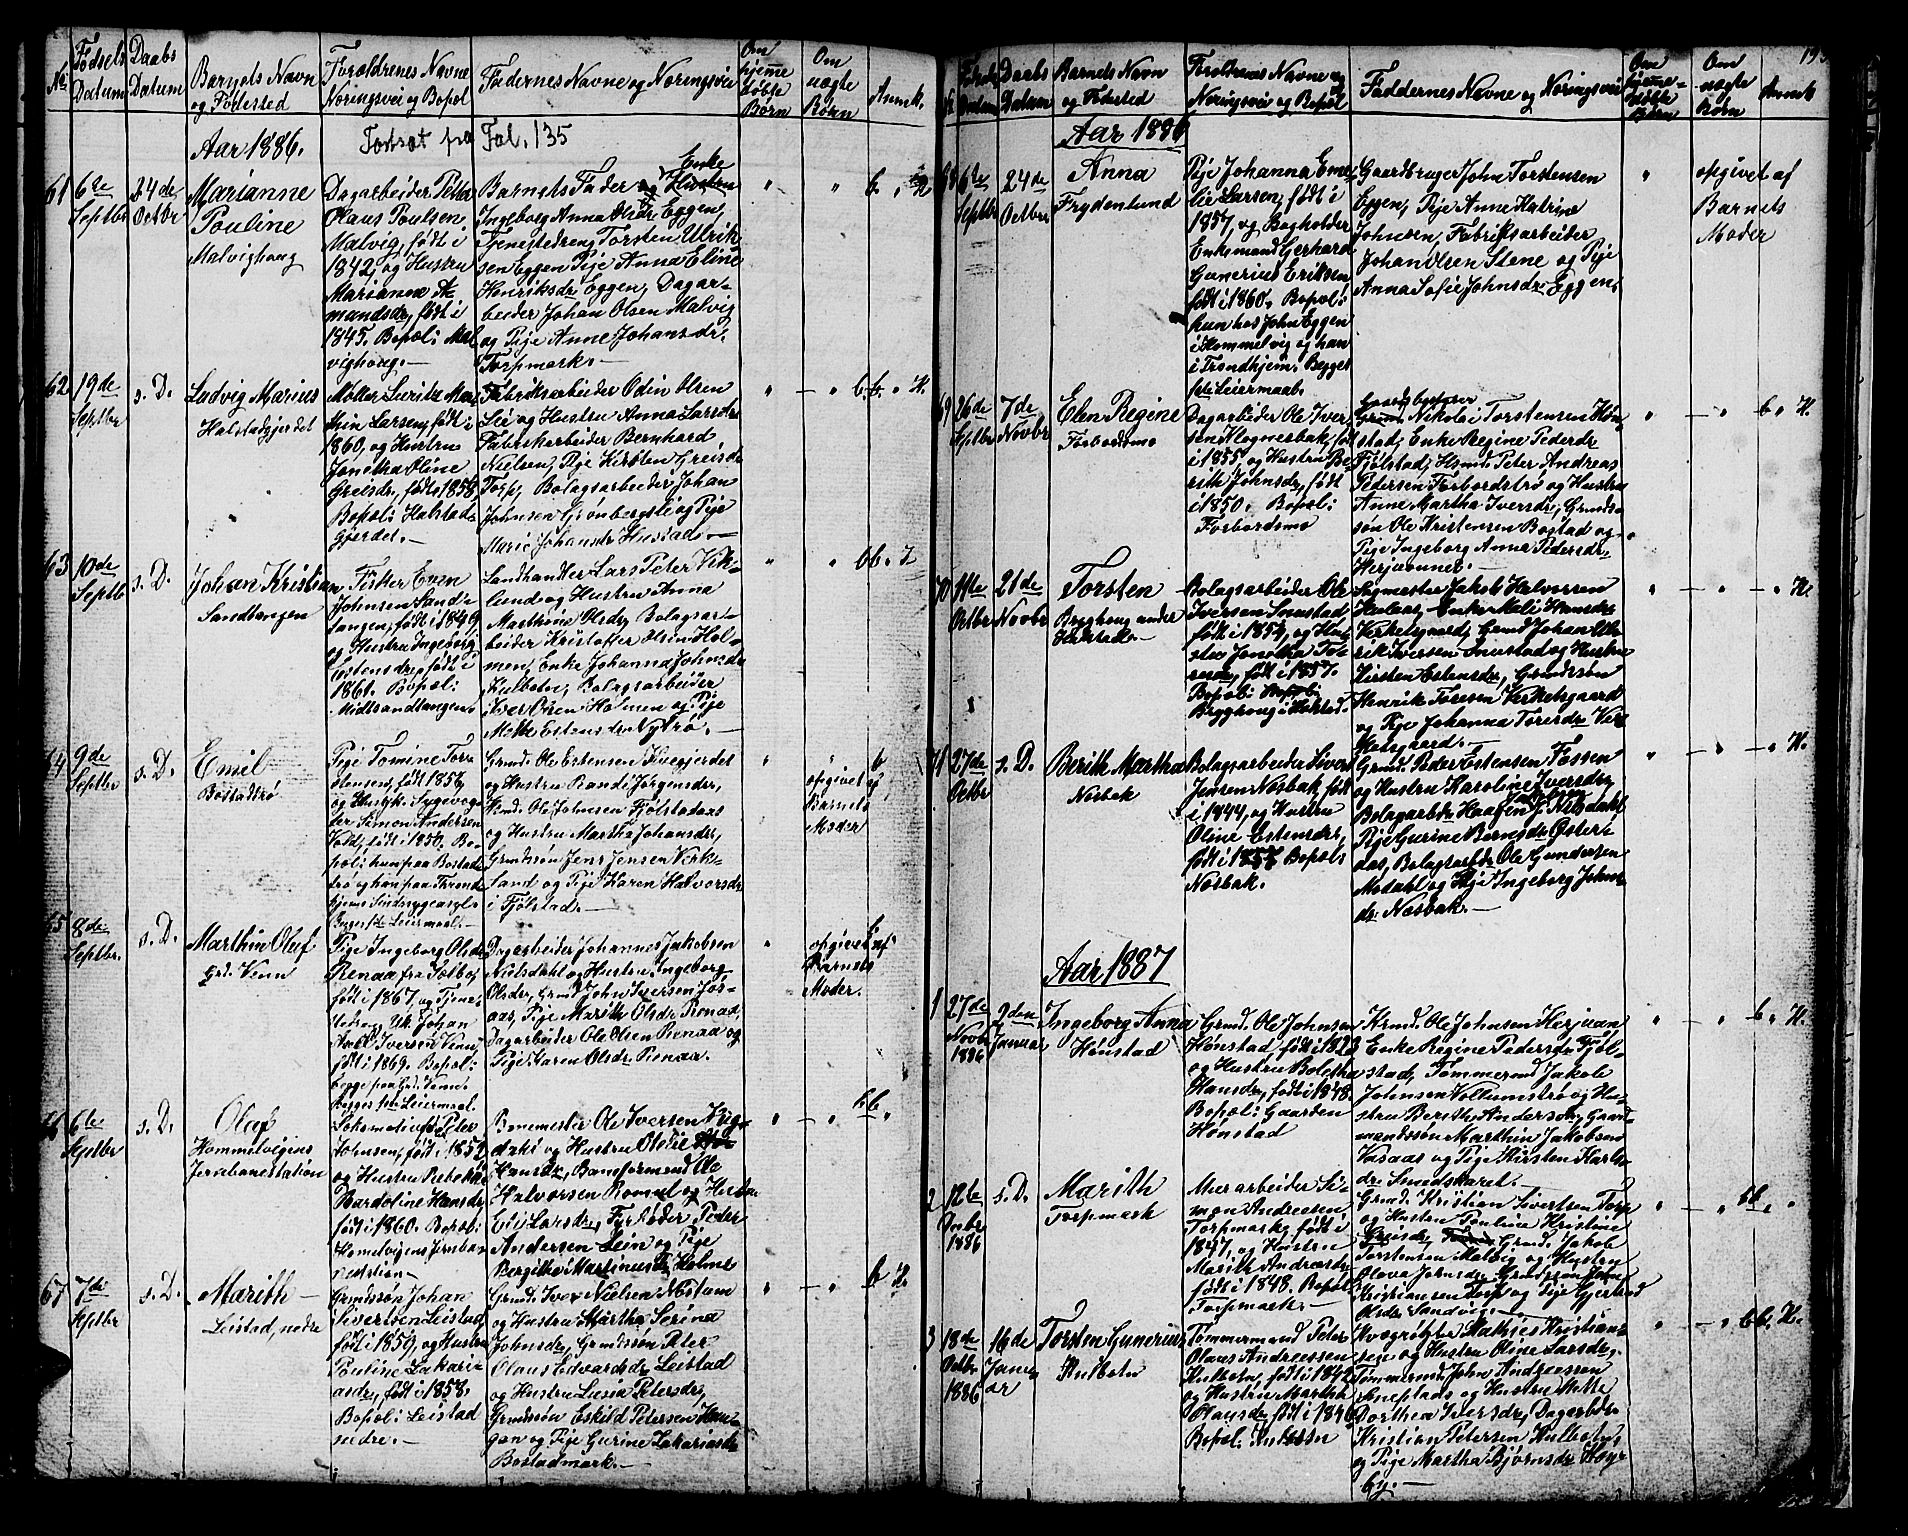 No
Fødsels
Datum
Daabs
Datum
Barnets Navn
og Fødested
Forældrenes Navne
Næringsvei og Bopæl
Faddernes Navne og Næringsvei
Om
hjemme
døbte
Børn
Om
uægte
Børn
Anmk.
Aar 1886.
Fortsat fra Fol. 135
61
6te
Septbr
24de
Octbr
Marianne
Pouline
Malvighaug
Dagarbeider Petter
Olaus Poulsen
Malvig, født i
1842, og Hustru
Marianna A-
mandsdr, født i
1845. Bopæl: Mal
vighaug.-
Barnets Fader og Enke
Ingeborg Anna Olsdr Eggen,
Tjenestedreng Torsten Ulrik
sen Eggen, Pige Anna Eline
Henriksdr Eggen, Dagar-
beider Johan Olsen Malvig
og Pige Anne Johansdr.
Torpmark.-
" " b. H
62
19de
Septbr
s. D.
Ludvig Marius
Halstadgjerdet
Møller Luritz Mar
tin Larsen, født i
1860, og Hustru
Jonetha Oline
Greisdr, født 1858,
Bopæl: Halstad-
gjerdet.-
Fabriksarbeider Odin Olsen
Lei og Hustru Anna Larsdr
Fabrikarbeider Bernhard
Nielsen, Pige Kirsten Greisdr
Torp, Bolagsarbeider Johan
Johnsen Grønbergsli og Pige
Marie Johansdr Hustad.-
" - " b. b. " H.
63
10de
Septb
s. D.
Johan Kristian
Sandtangen
Fisker Even
Johnsen Sand-
tangen, født i 1849
og Hustru Ingeborg
Estensdr, født i
1861. Bopæl:
Midtsandtangen.
Landhandler Lars Peter Vik-
lund og Hustru Anna
Marthine Olsdr, Bolagsar-
beider Kristoffer Olsen Hol-
men, Enke Johanna Johnsdr
Hulbotn, Bolagsarbeider
Iver Olsen Holmen og Pige
Mette Estensdr Nytrø.-
" " b b. I
64
9de
Septbr
s. D.
Emil
Bostadtrø
Pige Tomine Tors
tensen, født 1856
og Ungk. Sygevog
ter Simon Andersen
Vold, født i 1850. Bo-
pæl: hun paa Bostad
trø og han paa Thrond
hjems Sindssygeasyl.
Begges 1ste Leiermaal.-
Grmd. Ole Estensen Kvegjerdet
og Hustru Randi Jørgensdr,
Hmd. Ole Johnsen Fjølstadaas
og Hustru Martha Johansdr,
Grmdssøn Jens Jensen Verk-
land og Pige Karen Halvorsdr
i Fjølstad.-
" " b
opgivet af
Barnets
Moder
65
8de
Septbr.
s. D.
Marthin Oluf
Grd. Venn
Pige Ingeborg Olsdr
Renaa fra Selbo,
født i 1867, og Tjene-
stedreng Uk. Johan
Axel Iversen Venn
født i 1869. Bopæl:
begge paa Grd. Venn.
Begges 1ste Leiermaal.
Dagarbeider Johannes Jakobsen
Nielsdahl og Hustru Ingeborg
Olsdr, Grmd John Iversen Jøs-
aas, Pige Marith Olsdr Renaa,
Dagarbeider Ole Olsen Renaa og
Pige Karen Olsdr Renaa.
"
opgivet af
Barnets
Moder.
66
6te
Septbr
s. D.
Oluf
Hommelvigens
Jernbanestation
Lokomotivfd. Peter
Johnsen, født i 1852
og Hustru Rebekka
Bardoline Hansdr
født i 1860. Bopæl:
Homelvigens Jernban
nestation.
Banemester Ole Iversen Kvig-
daki og Hustru Oline
Hansdr, Baneformand Ole
Halvorsen Romul og Hustru
Eli Larsdr, Fyrbøder Peder
Andersen Lein og Pige
Bergithe Martinusdr Holme
" - " b b "
67
7de
Septbr
s. D.
Marith-
Leistad, nedre
Grmdssøn Johan
Siversen Leistad
født i 1859, og Hustru
Pauline Zakari-
asdr, født i 1858.
Bopæl: Leistad
nedre.-
Grmd. Iver Nielsen Næstum
og Hustru Martha Serina
Johnsdr, Grmdssøn Peter
Olaus Edvardsdr Leistad
og Hustru Lusia Petersdr,
Grmdssøn Eskild Petersen Hau-
gan og Pige Gurine Zakariasdr
Bostadmark.-
" - " b H.
195
No
Fødsels
Datum
Daabs
Datum
Barnets Navn
og Fødested
Forældrenes Navne og
Næringsvei og Bopæl
Faddernes Navne og Næringsvei
Om
hjemme-
døbte
Børn
Om
uægte
Børn
Anmk
Aar 1886
68
6te
Septbr
24de
Octbr
Anna
Frydenlund
Pige Johanna Eme-
lie Larsen, født i
1857, og Bogholder
Enkemand Gerhard
Gunerius Eriksen
født i 1860. Bopæl:
hun hos John Eggen
i Hommelvig og han
i Trondhjem. Begges
1ste Leiermaal.
Gaardbruger John Torstensen
Eggen, Pige Anne Katrine
Johnsen, Fabriksarbeider
Johan Olsen Stene og Pige
Anna Sofie Johnsdr Eggen.
"
opgivet af
Barnets
Moder
69
26de
Septbr
7de
Novbr
Elen Regine
Forbordsmo
Dagarbeider Ole Iver-
sen Klognesbak, født
i 1855 og Hustru Be-
rith Johnsdr, født
i 1850. Bopæl:
Forbordsmo
Gaardbruger Nikolai Torstensen Høn
stad, Enke Regine Pedersdr
Fjølstad, Hsmd. Peter Andreas
Pedersen Forbordstrø og Hustru
Anne Martha Iversdr, Grmds-
søn Ole Kristensen Bostad og
Pige Ingeborg Anna Pedersdr
Herjuaunet.-
" - " b " H.
70
11te
Octbr
21de
Novbr
Torsten
Brygghaug under
Halstad.-
Bolagsarbeider Ole
Iversen Snustad
født i 1854, og Hus-
stru Jonetha Tor
sendr, født i 1857.
Bopæl:
Brygghaug i Halstad.
Sagmester Jakob Halvorsen
Haulaas, Enke Mali Hansdr
Verketsgaard, Grmd Johan Ul-
rik Iversen Snustad og Hustru
Kirsten Estensdr, Grmdssøn
Henrik Toresen Verketsgaard
og Pige Johanna Toresdr Ver-
ketsgaard.-
" - " - " H.
71
27de
Octbr
s. D.
Berith Martha
Næsbak
Bolagsarbeider Sivert
Jensen Næsbak, født
i 1844, og Hustru
Oline Estensdr,
født i 1857 Bopæl:
Næsbak.
Grmd. Peder Estensen Fossen
og Hustru Karoline Iversdr,
Bolagarbdr Haagen J. Nilsdahl
Pige Gurine Bernsdr Øster-
aas, Bolagsarbdr Ole Gundersen
Modahl og Pige Ingeborg Johns-
dr. Næsbak.-
" - " - " H.
Aar 1887
1
27de
Novbr
1886
9den
Januar
Ingeborg Anna
Hønstad
Grmd. Ole Johnsen
Hønstad, født i 1823
og Hustru Boletha
Hansdr, født i 1848.
Bopæl: Gaarden
Hønstad
Hrmd. Ole Johnsen Herjuan,
Enke Regine Pedersdr Fjøl-
stad, Tømmermd Jakob
Johnsen Volkumstrø og Hu-
stru Berith Andersdr, Grmd-
mandssøn Marthin Jakobsen
Vasaas og Pige Kirsten Karls-
dr. Smedskaret.-
" - " b " H.
2
12te
Decbr
1886
s. D.
Marith
Torpmark
Murarbeider Si-
mon Andreesen
Torpmark, født i
1847, og Hustru
Marith Andreasdr
født i 1848. Bopæl
Torpmark.-
Grmd. Kristian Sivertsen Torp
og Hustru Pauline Kristine
Greisdr, Grmd. Jakob
Torstensen Malvig og Hustru
Olava Jørnsdr, Grmdssøn John
Kristiansen Torp og Pige Gjertrud
Olsdr Sandvig.-
" - " bb. "
3
18de
Octbr
1886
16de
Janu
ar
Torsten Gunerius
Hulbotn
Tømmermand Peter
Olaus Andreesen
Hulbotn, født i 1842
og Hustru Martha
Olausdr, født i 1846
Bopæl: Hulbotn
Kvægrøgter Mathies Kristian-
sen og Hustru Oline Larsdr,
Tømmermd John Andreesen
Sneplads og Hustru Mette
Dorthea Iversdr, Dagarbdr.
Kristian Petersen Hulbotn,
og Pige Martha Bjørnsdr Høy-
by.-
" - " bb. H.